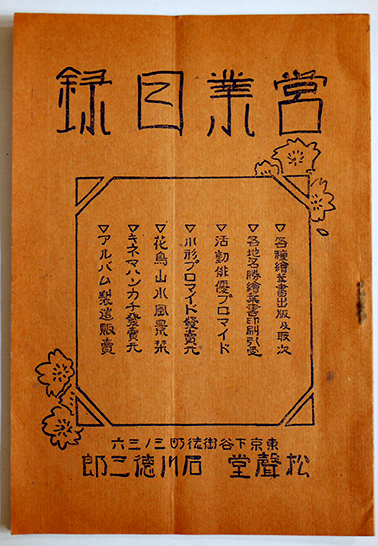 営業目録
▽各種繪葉書出版及取次
▽各地名勝繪葉書印刷引受
▽活動俳優プロマイド
▽小形プロマイド發賣元
▽花鳥山水風景栞
▽キネマハンカチ發賣元
▽アルバム製造販賣
東京下谷御徒町三ノ三六
松聲堂 石川德三郎